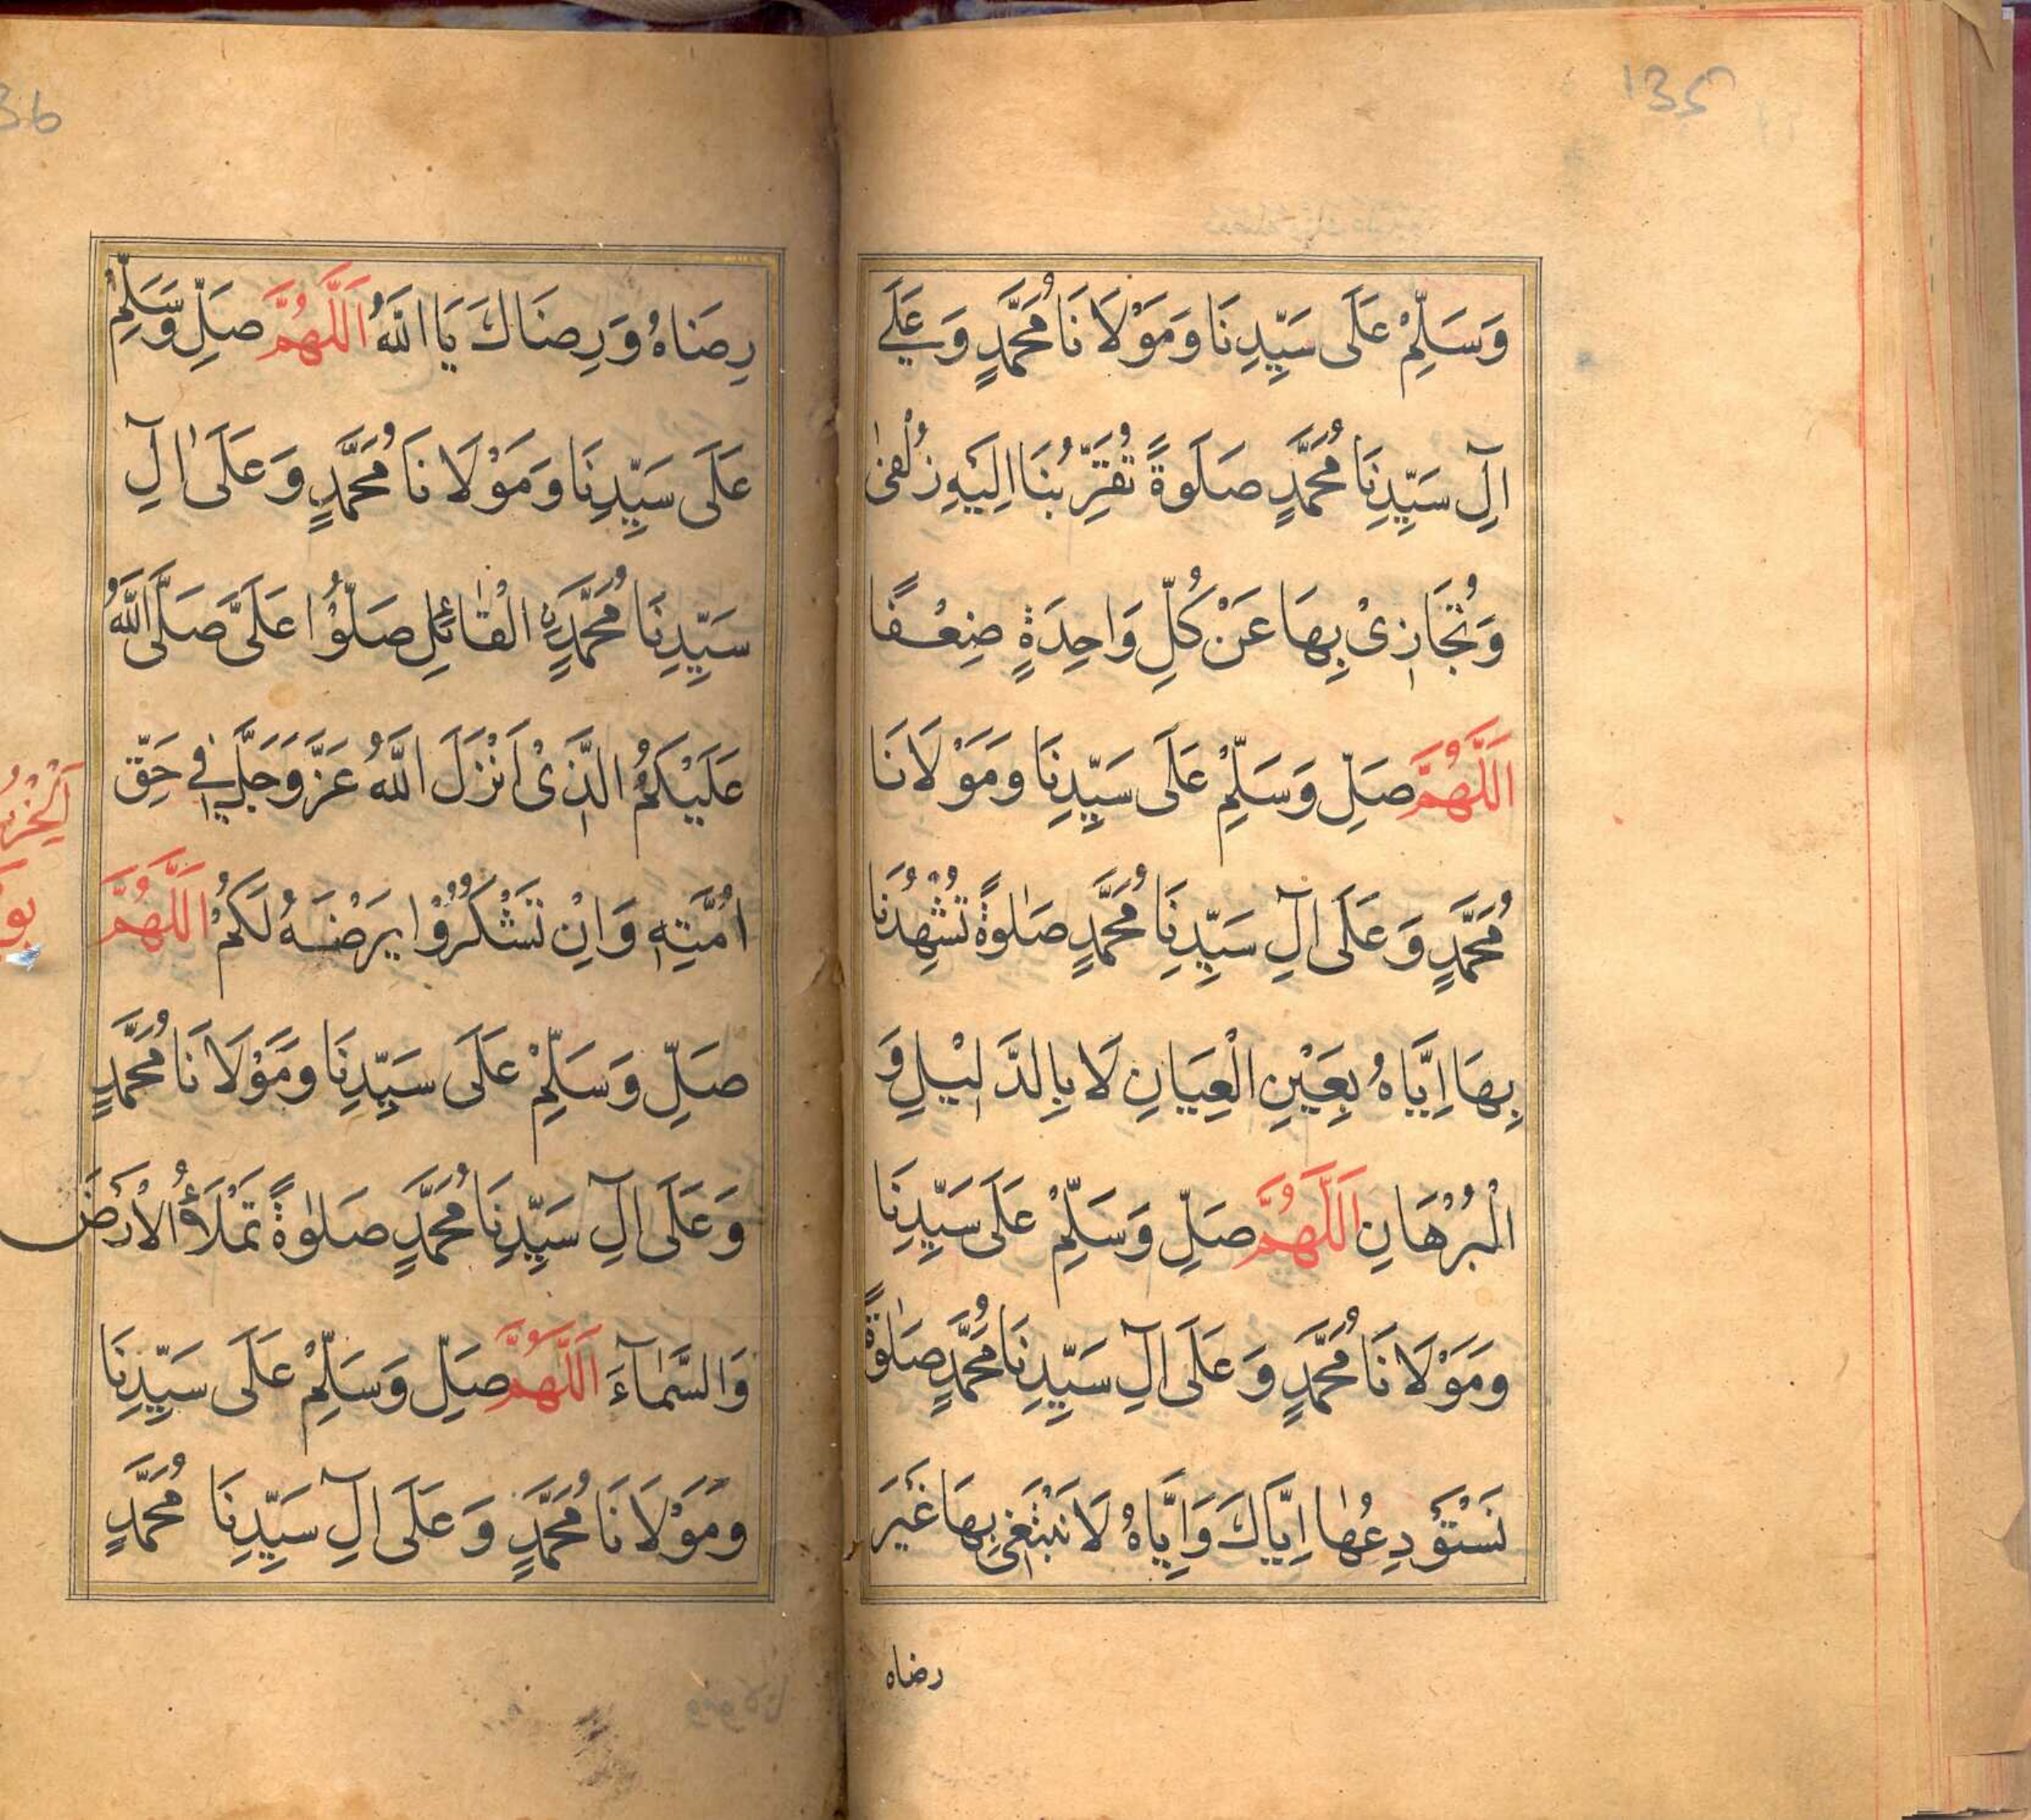 135
وَسَلِّمْ عَلَى سَيِّدِنَا وَمَوْلَانَا مُحَمَّدٍ وَعَلَے
اٰلِ سَيِّدِنَا مُحَمَّدٍ صَلَوةً تُقَرِّبُنَا اِلَيْهِ زُلْفٰى
وَتُجَازِىْ بِهَا عَنْ كُلِّ وَاحِدَةٍ ضِعْفًا
اَللَّهُمَّ صَلِّ وَسَلِّمْ عَلَى سَيِّدِنَا وَمَوْلَانَا
مُحَمَّدٍ وَعَلَى اٰلِ سَيِّدِنَا مُحَمَّدٍ صَلٰوةً تُشْهِدُنَا
بِهَا اِيَّاهُ بِعَيْنِ الْعِيَانِ لَا بِالدَّلِيْلِ وَ
الْبُرْهَانِ اَللَّهُمَّ صَلِّ وَسَلِّمْ عَلَى سَيِّدِنَا
وَمَوْلَانَا مُحَمَّدٍ وَعَلَى اٰلِ سَيِّدِنَا مُحَمَّدٍ صَلٰوةً
نَسْتَوْدِعُهَا اِيَّاكَ وَاِيَّاهُ لَا نَبْتَغِىْ بِهَا غَيْرَ
رضاه
36
رِضَاهُ وَرِضَاكَ يَا اَللّٰهُ اَللَّهُمَّ صَلِّ وَسَلِّمْ
عَلَى سَيِّدِنَا وَمَوْلَانَا مُحَمَّدٍ وَعَلَى اٰلِ
سَيِّدِنَا مُحَمَّدٍ الْقَائِلِ صَلُّوْا عَلَىَّ صَلَّى اللّٰهُ
عَلَيْكُمُ الَّذِىْ اَنْزَلَ اللّٰهُ عَزَّ وَجَلَّ فِى حَقِّ
اُمَّتِهٖ وَاِنْ تَشْكُرُوْا يَرْضَهُ لَكُمْ اَللَّهُمَّ
صَلِّ وَسَلِّمْ عَلَى سَيِّدِنَا وَمَوْلَانَا مُحَمَّدٍ
وَعَلَى اٰلِ سَيِّدِنَا مُحَمَّدٍ صَلٰوةً تَمْلَأُ الْاَرْضَ
وَالسَّمَآءَ اَللَّهُمَّ صَلِّ وَسَلِّمْ عَلَى سَيِّدِنَا
وَمَوْلَانَا مُحَمَّدٍ وَعَلَى اٰلِ سَيِّدِنَا مُحَمَّدٍ